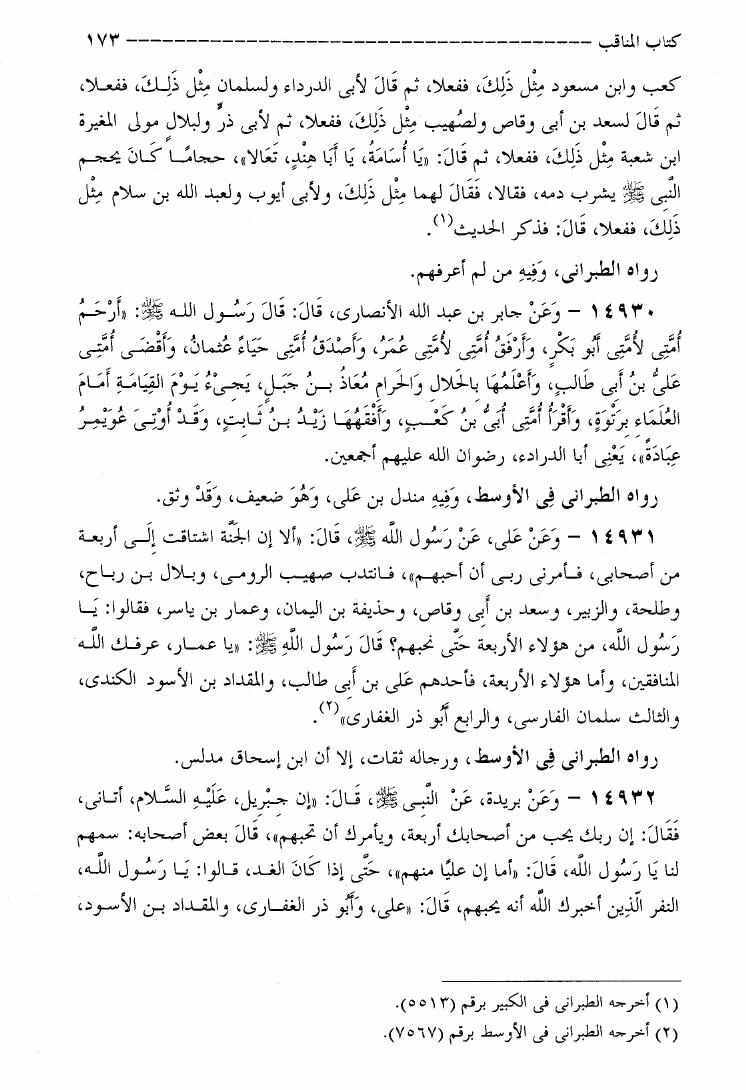 كتاب المناقب ------------------------------------ ١٧٣
كعب وابن مسعود مِثْل ذَلِكَ، ففعلا، ثم قَالَ لأبى الدرداء ولسلمان مِثْل ذَلِكَ، ففعلا،
ثم قَالَ لسعد بن أبى وقاص ولصُهيب مِثْل ذَلِكَ، ففعلا، ثم لأبى ذرٍّ ولبلالٍ مولى المغيرة
ابن شعبة مِثْل ذَلِكَ، ففعلا، ثم قَالَ: «يَا أُسَامَةُ، يَا أَبَا هِنْدٍ، تَعَالا»، حجامًا كَانَ يحجم
النَّبِى ﷺ يشرب دمه، فقالا، فَقَالَ لهما مِثْل ذَلِكَ، ولأبى أيوب ولعبد الله بن سلام مِثْل
ذَلِكَ، ففعلا، قَالَ: فذكر الحديث(١).
رواه الطبرانى، وَفِيهِ من لم أعرفهم.
١٤٩٣٠ - وَعَنْ جابر بن عبد الله الأنصارى، قَالَ: قَالَ رَسُول اللـه ﷺ: «أَرْحَمُ
أُمَّتِى لأُمَّتِى أَبُو بَكْرٍ، وَأَرْفَقُ أُمَّتِى لأُمَّتِى عُمَرُ، وَأَصْدَقُ أُمَّتِى حَيَاءً عُثمانُ، وَأَقْضَى أُمَّتِى
عَلىُّ بنُ أبى طالبٍ، وَأَعْلَمُهَا بِالحَلالِ وَالحَرامِ مُعَاذُ بنُ جَبَلٍ، يَجِىْءُ يَوْمَ القِيَامَةِ أَمَامَ
العُلَمَاءِ بِرَتْوَةٍ، وَأَقْرَأُ أُمَّتِى أُبَىُّ بنُ كَعْبٍ، وَأَفْقَهُهَا زَيْدُ بنُ ثَابتٍ، وَقَدْ أُوْتِىَ عُوَيْمِرُ
عِبَادَةً»، يَعْنِى أبا الدرادء، رضوان الله عليهم أجمعين.
رواه الطبرانى فِى الأوسط، وَفِيهِ مندل بن عَلى، وَهُوَ ضعيف، وَقَدْ وثق.
١٤٩٣١ - وَعَنْ عَلى، عَنْ رَسُول اللَّه ﷺ، قَالَ: «ألا إن الجَنَّة اشتاقت إِلَى أربعة
من أصحابى، فأمرنى ربى أن أحبهم»، فانتدب صهيب الرومى، وبلال بن رباح،
وطلحة، والزبير، وسعد بن أبى وقاص، وحذيفة بن اليمان، وعمار بن ياسر، فقالوا: يَا
رَسُول اللَّه، من هؤلاء الأربعة حَتَّى نحبهم؟ قَالَ رَسُول اللَّهِ ﷺ: «يا عمار، عرفك اللَّه
المنافقين، وأما هؤلاء الأربعة، فأحدهم عَلى بن أبى طالب، والمقداد بن الأسود الكندى،
والثالث سلمان الفارسى، والرابع أَبُو ذر الغفارى»(٢).
رواه الطبرانى فِى الأوسط، ورجاله ثقات، إلا أن ابن إسحاق مدلس.
١٤٩٣٢ - وَعَنْ بريدة، عَنْ النَّبِى ﷺ، قَالَ: «إن جبريل، عَلَيْهِ السَّلام، أتانى،
فَقَالَ: إن ربك يحب من أصحابك أربعة، ويأمرك أن تحبهم»، قَالَ بعض أصحابه: سمهم
لنا يَا رَسُول اللَّه، قَالَ: «أما إن عليًا منهم»، حَتَّى إذا كَانَ الغد، قالوا: يَا رَسُول اللَّه،
النفر الَّذِين أخبرك اللَّه أنه يحبهم، قَالَ: «على، وَأَبُو ذر الغفارى، والمقداد بن الأسود،
(١) أخرجه الطبرانى فى الكبير برقم (٥٥١٣).
(٢) أخرجه الطبرانى فى الأوسط برقم (٧٥٦٧).